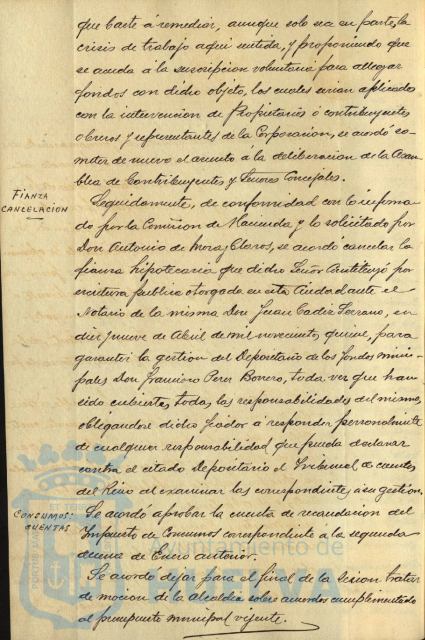 que baste á remediar, aunque solo sea en parte, la
crisis de trabajo aqui sentida, y proponiendo que
se acuda á la suscripcion voluntaria para allegar
fondos con dicho objeto, los cuales serian aplicados
con la intervencion de Propietarios ó contribuyentes
obreros y representantes de la Corporacion, se acordó so-
meter de nuevo el asunto á la deliberacion de la Asam-
blea de Contribuyentes y Señores Concejales.
FIANZA
CANCELACION
Seguidamente, de conformidad con lo informa-
do por la Comision de Hacienda y lo solicitado por
Don Antonio de Mora y Claros, se acordó cancelar la
fianza hipotecaria que dicho Señor constituyó por
escritura publica otorgada en esta Ciudad ante el
Notario de la misma Don Juan Cadiz Serrano, en
diez y nueve de Abril de mil novecientos quince, para
garantir la gestion del Depositario de los fondos muni-
pales Don Francisco Perez Bonero, toda vez que han
sido cubiertas todas las responsabilidades del mismo,
obligandose dicho fiador á responder personalmente
de cualquier responsabilidad que pueda declarar
contra el citado Depositario el Tribunal de cuentas
del Reino al examinar las correspondientes á su gestion.
CONSUMOS:
CUENTAS
Se acordó aprobar la cuenta de recaudacion del
Impuesto de Consumos correspondiente á la segunda
decena de Enero anterior.
Se acordó dejar para el final de la sesion tratar
de mocion de la Alcaldia sobre acuerdos cumplimentado
al presupuesto municipal vigente.
Ayuntamiento de